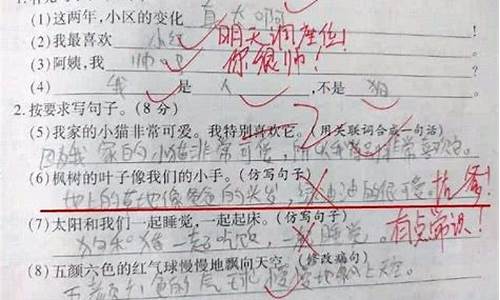 (1)这两年,小区的变化 真大啊
(2)我最喜欢 小红 明天调座位!
(3)阿姨,我 帅吗 你很帅!
(4) 我 是 人 ,不是 狗
2.按要求写句子。(8分)
(5)我家的小猫非常可爱。我特别喜欢它。(用关联词合成一句话)
因为我家的小猫非常可爱,所以我非常喜欢它。
(6)枫树的叶子像我们的小手。(仿写句子)
地上的草地像爸爸的头发,绿油油的很可爱。抗议!
(7)太阳和我们一起睡觉,一起起床。(仿写句子)
狗和猪一起吃饭,一起睡觉。 有点常识!
(8)五颜六色的红气球慢慢地飘向天空。(修改病句)
五颜六色的气球慢慢地飘上天空。